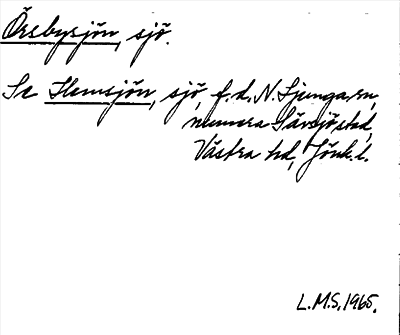 Öresbysjön, sjö.
Se Hemsjön, sjö, f.d. N. Ljunga sn,
numera Sävsjö stad,
Västra hd, Jönk. l.
L.M.S. 1965.